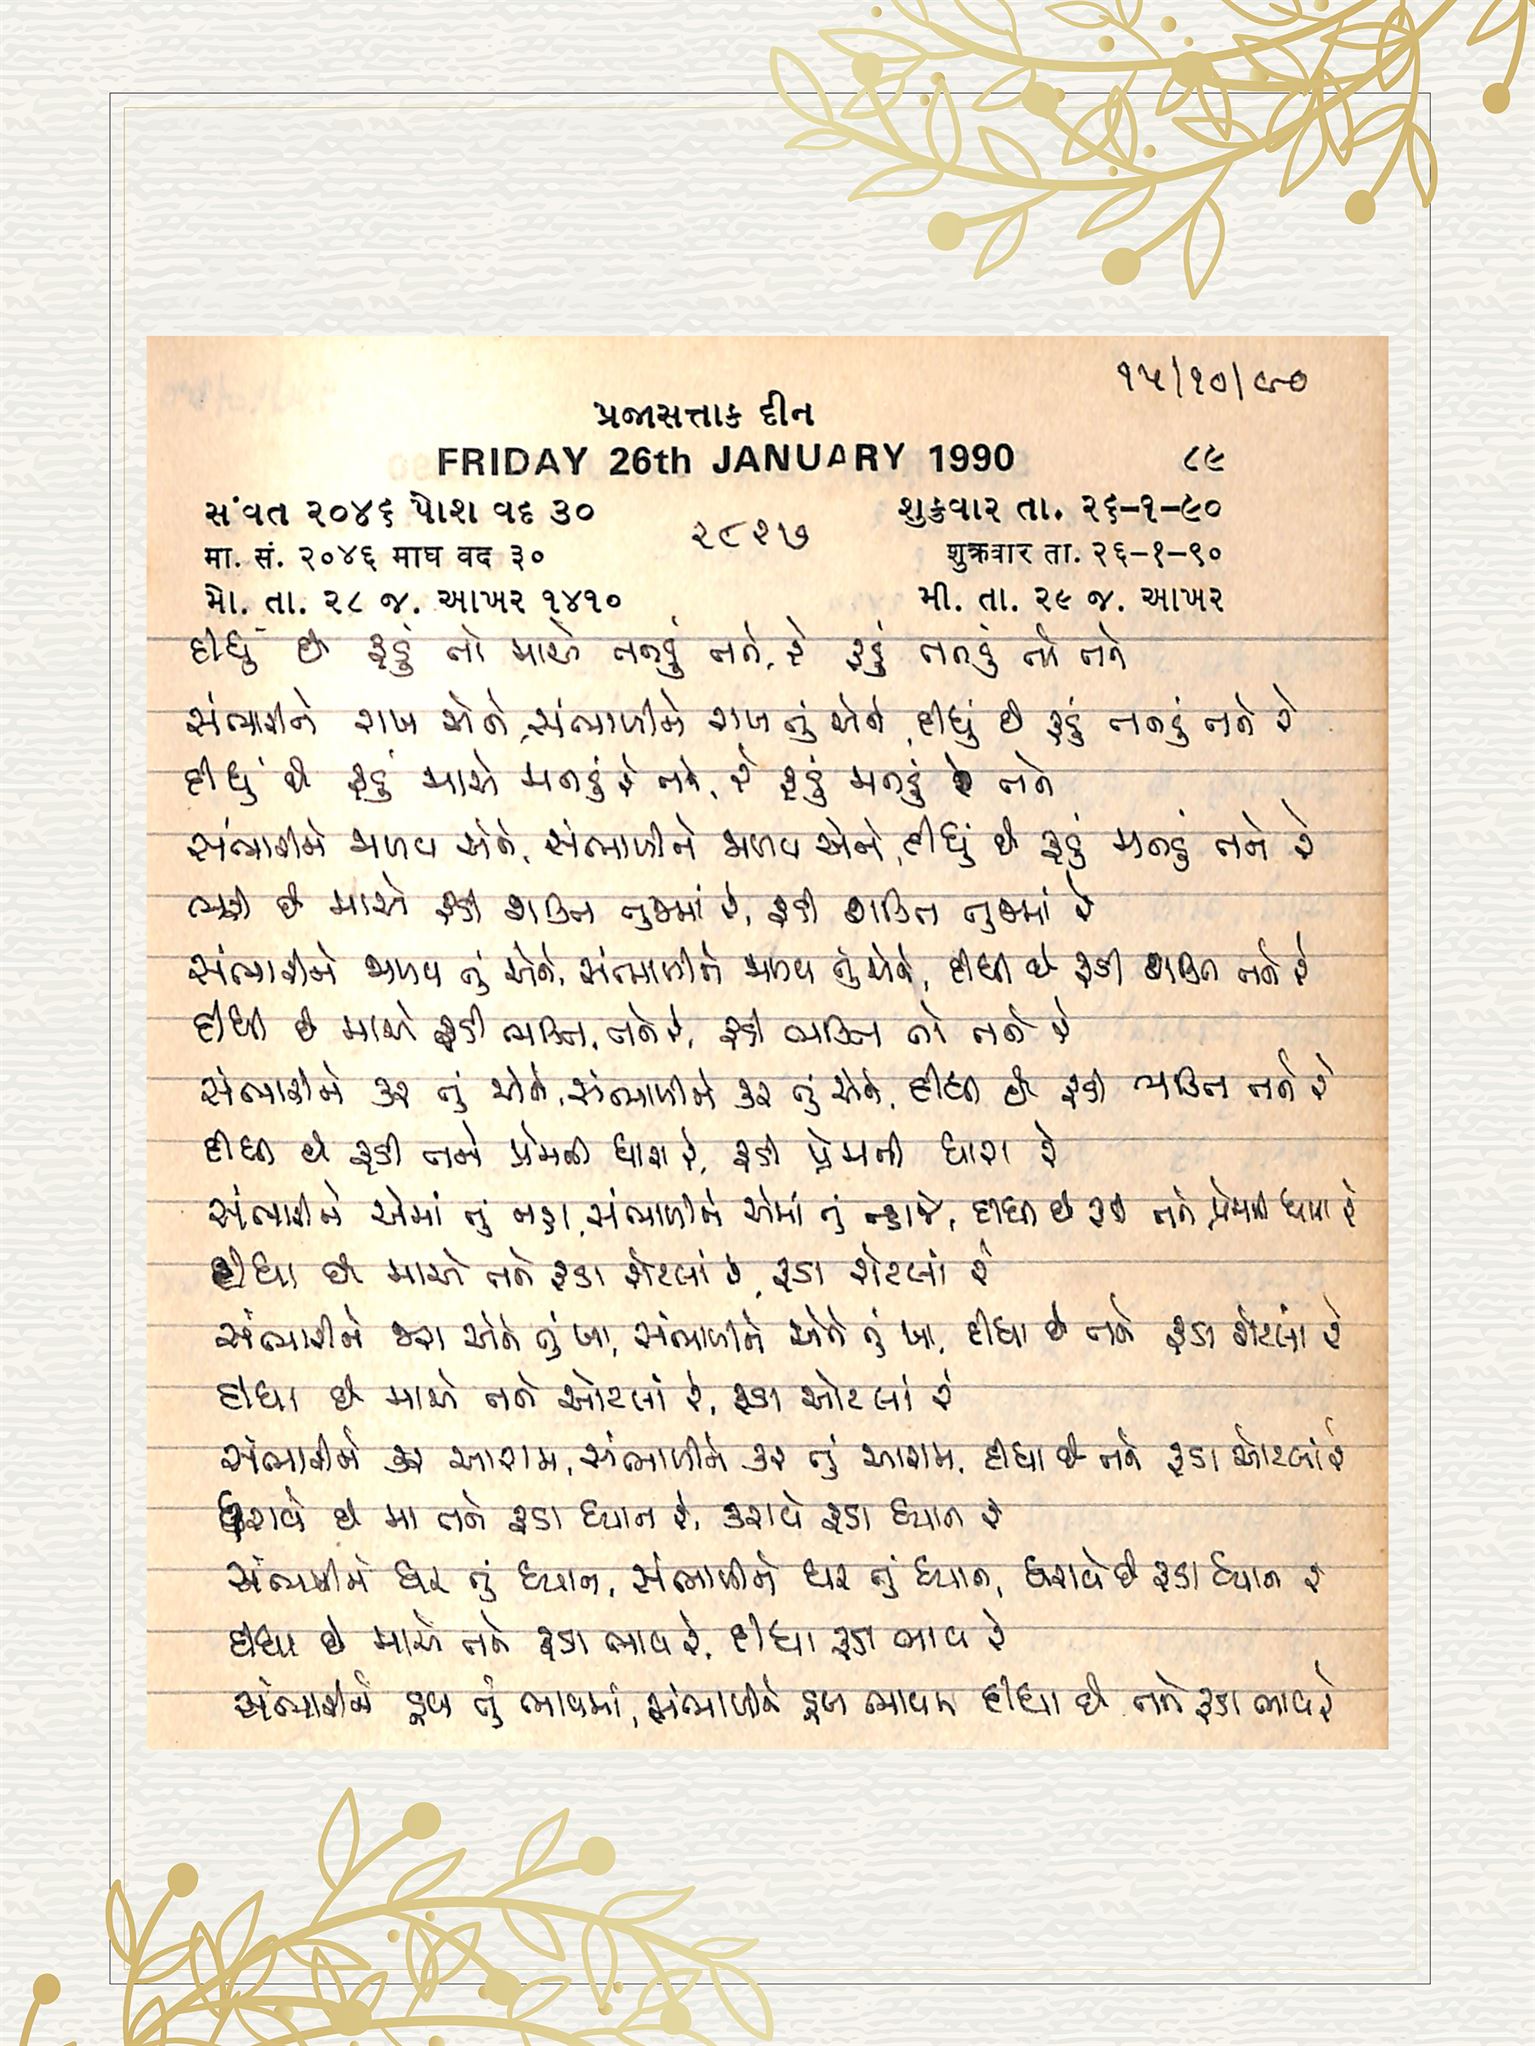 ૧૫/૧૦/૯૦
પ્રજાસત્તાક દીન
FRIDAY 26th JANUARY 1990 ૮૯
સંવત ૨૦૪૬ પોશ વદ ૩૦ શુક્રવાર તા. ૨૬-૧-૯૦
૨૮૨૭
मा. सं. २०४६ माघ वद ३० शुक्रवार ता. २६-१-९०
મો. તા. ૨૮ જ. આખર ૧૪૧૦ મી. તા. ૨૯ જ. આખર
દીધું છે રૂડું તો માએ તનડું તને, રે રૂડું તનડું તો તને
સંભાળીને રાખ એને, સંભાળીને રાખ તું એને, દીધું છે રૂડું તનડું તને રે
દીધું છે રૂડું માએ મનડું રે તને, રે રૂડું મનડું રે તને
સંભાળીને મેળવ એને, સંભાળીને મેળવ એને, દીધું છે રૂડું મનડું તને રે
ભરી છે માએ રૂડી શક્તિ તુજમાં રે, રૂડી શક્તિ તુજમાં રે
સંભાળીને મેળવ તું એને, સંભાળીને મેળવ તું એને, દીધી છે રૂડી શક્તિ તને રે
દીધી છે માએ રૂડી ભક્તિ, તને રે, રૂડી ભક્તિ તો તને રે
સંભાળીને કર તું એને, સંભાળીને કર તું એને, દીધી છે રૂડી ભક્તિ તને રે
દીધી છે રૂડી તને પ્રેમની ધારા રે, રૂડી પ્રેમની ધારા રે
સંભાળીને એમાં તું નહા, સંભાળીને એમાં તું ન્હાજે, દીધી છે રૂડી તને પ્રેમની ધારા રે
દીધા છે માએ તને રૂડા રોટલાં રે, રૂડા રોટલાં રે
સંભાળીને જરા એને તું ખા, સંભાળીને એને તું ખા, દીધા છે તને રૂડા રોટલાં રે
દીધા છે માએ તને ઓટલાં રે, રૂડા ઓટલાં રે
સંભાળીને કર આરામ, સંભાળીને કર તું આરામ, દીધા છે તને રૂડા ઓટલાં રે
ધરાવે છે મા તને રૂડા ધ્યાન રે, કરાવે રૂડા ધ્યાન રે
સંભાળીને ધર તું ધ્યાન, સંભાળીને ધર તું ધ્યાન, ધરાવે છે રૂડા ધ્યાન રે
દીધા છે માએ તને રૂડા ભાવ રે, દીધા રૂડા ભાવ રે
સંભાળીને ડૂબ તું ભાવમાં, સંભાળીને ડૂબ ભાવમાં દીધા છે તને રૂડા ભાવ રે